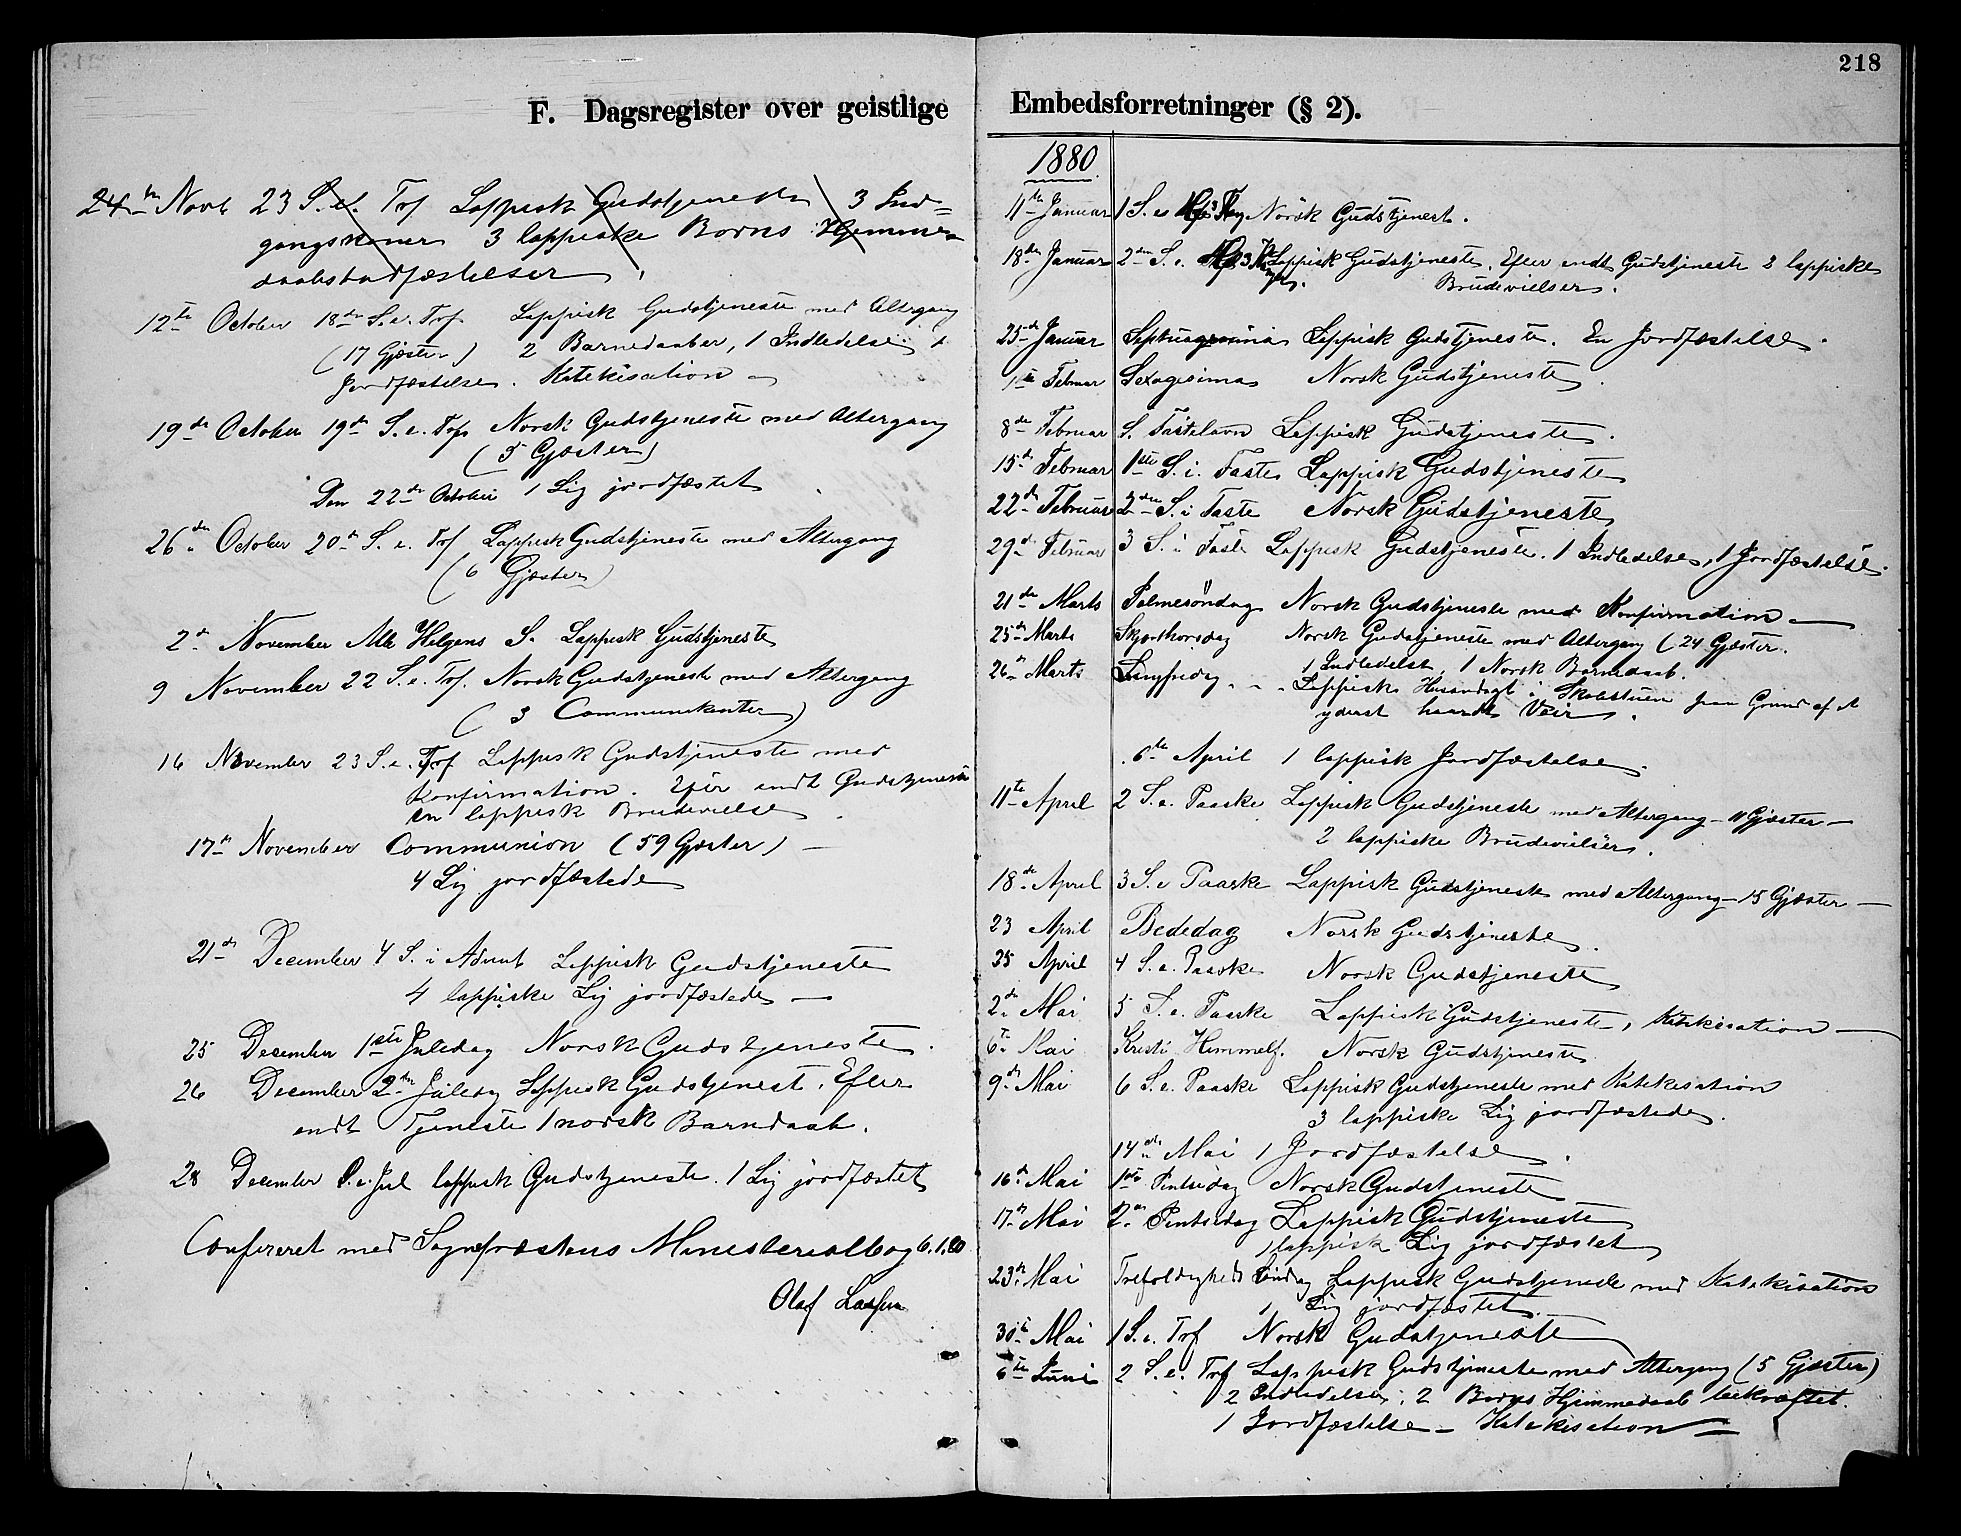 F. Dagsregister over geistlige
24de Novb 23 S. e. Trf Lappisk Gudstjeneste 3 Ind=
gangskoner 3 lappiske Borns Hjemme=
daabstadfæstelser
12te October 18de S. e. Trf. Lappisk Gudstjeneste med Altergang
(17 Gjæster) 2 Barnedaaber, 1 Indledelse, 1
Jordfæstelse. Katekisation
19de October 19de S. e. Trf Norsk Gudstjeneste med Altergang
(5 Gjæster)
Den 22de October 1 Lig jordfæstet
26de October 20de S. e. Trf Lappisk Gudstjeneste med Altergang
(6 Gjæster)
2de November Alle Helgens S. Lappisk Gudstjeneste
9 November 22 S. e. Trf. Norsk Gudstjeneste med Altergang
(3 Communikanter)
16 November 23 S. e. Trf Lappisk Gudstjeneste med
Konfirmation. Efter endt Gudstjeneste
en lappisk Brudevielse
17de November Communion (59 Gjæster) –
4 Lig jordfæstede
21de December 4 S. i Advent Lappisk Gudstjeneste
4 lappiske Lig jordfæstede –
25 December 1ste Juledag Norsk Gudstjeneste.
26 December 2den Juledag Lappisk Gudstjenest. Efter
endt Tjeneste 1 norsk Barndaab.
28 December S. e. Jul lappisk Gudstjeneste. 1 Lig jordfæstet
Confereret med Sognepræstens Ministerialbog 6.1.80
Olaf
218
Embedsforretninger (§ 2).
1880.
11te Januar 1 S. e. H. 3 K. Norsk Gudstjenest.
18de Januar 2den S. e. H. 3 K. Lappisk Gudstjeneste. Efter endt Gudstjeneste 2 lappiske
Brudevielser.
25de Januar Septuagesima Lappisk Gudstjeneste. En Jordfæstelse.
1ste Februar Sexagesima Norsk Gudstjeneste.
8de Februar S. Fastelavn Lappisk Gudstjeneste.
15de Februar 1ste S. i. Faste Lappisk Gudstjeneste
22de Februar 2den S. i Faste Norsk Gudstjeneste
29de Februar 3 S. i Faste Lappisk Gudstjeneste. 1 Indledelse, 1 Jordfæstelse.
21de Marts Palmesöndag Norsk Gudstjeneste med Konfirmation –
25de Marts Skjærthorsdag Norsk Gudstjeneste med Altergang (24 Gjæster.
1 Indledelse, 1 Norsk Barnedaab.
26de Marts Langfredag - - Lappisk Husandagt i Skolestuen paa Grund af et
yderst haardt Veir.
6te April 1 lappisk Jordfæstelse.
11te April 2 S. e. Paaske Lappisk Gudstjeneste med Altergang – 11 Gjæster –
2 lappiske Brudevielser.
18de April 3 S. e Paaske Lappisk Gudstjeneste med Altergang – 15 Gjæster –
23 April Bededag Norsk Gudstjeneste.
25 April 4 S. e. Paaske Norsk Gudstjeneste
2de Mai 5 S. e. Paaske Lappisk Gudstjeneste, Katekisation –
6te Mai Kristi Himmelf. Norsk Gudstjeneste
9de Mai 6 S. e. Paaske Lappisk Gudstjeneste med Katekisation
3 lappiske Lig jordfæstede.
14de Mai 1 Jordfæstelse.
16de Mai 1ste Pintsedag Norsk Gudstjeneste
17de Mai 2den Pintsedag Lappisk Gudstjeneste
1 lappisk Lig jordfæstet
23de Mai Trefoldigheds Söndag Lappisk Gudstjeneste med Katekisation
1 Lig jordfæstet.
30te Mai 1 S. e. Trf Norsk Gudstjeneste
6te Juni 2 S. e. Trf Lappisk Gudstjeneste med Altergang (5 Gjæster)
2 Indledelser, 2 Borns Hjemmedaab bekræftet.
1 Jordfæstelse – Katekisation –